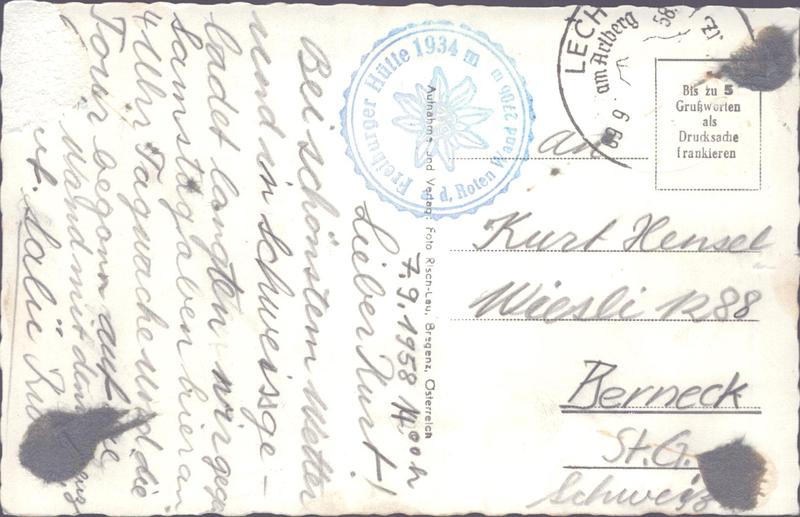 7.9.1958 14.00 h
Lieber Kurt!
Bei schönstem Wetter
und in Schweissge-
badet langten wir gegen
Samstagabend hier an
4 Uhr Tagwache und die
Tour begann auf
Wand mit dem
Salü
Freiburger Hütte 1934 m
a. d. Roten Wand 2706 m
Aufnahme und Verlag: Foto Risch-Lau, Bregenz, Österreich
LECH
am Arlberg
Bis zu 5
Grußworten
als
Drucksache
frankieren
an
Kurt Hensel
Wiesli 1288
Berneck
St. G.
Schweiz